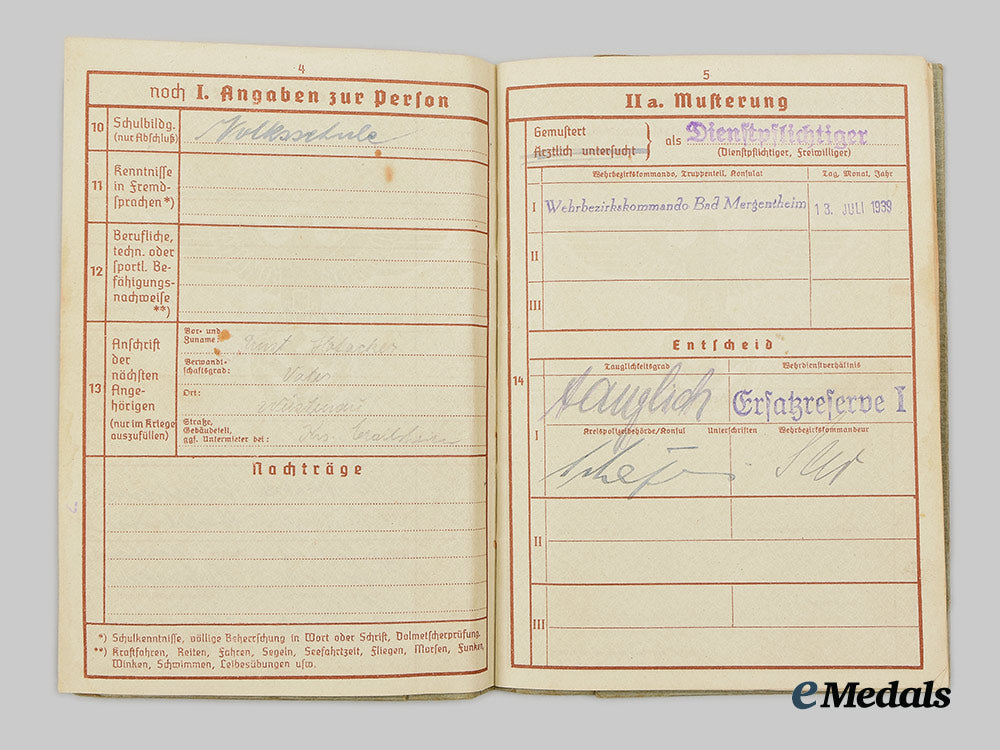 4
noch I. Angaben zur Person
10
Schulbildg.
(nur Abschluß)
Volksschule
11
Kenntnisse
in Fremd-
sprachen*)
12
Berufliche,
techn. oder
sportl. Be-
fähigungs-
nachweise
**)
13
Anschrift
der
nächsten
Ange-
hörigen
(nur im Kriege
auszufüllen)
Vor- und
Zuname:
Ernst
Verwandt-
schaftsgrad:
Vater
Ort:
Straße,
Gebäudeteil,
ggf. Untermieter bei:
Nachträge
*) Schulkenntnisse, völlige Beherrschung in Wort oder Schrift, Dolmetscherprüfung.
**) Kraftfahren, Reiten, Fahren, Segeln, Seefahrtzeit, Fliegen, Morsen, Funken,
Winken, Schwimmen, Leibesübungen usw.
5
II a. Musterung
Gemustert
Ärztlich untersucht
als Dienstpflichtiger
(Dienstpflichtiger, Freiwilliger)
Wehrbezirkskommando, Truppenteil, Konsulat
Tag, Monat, Jahr
I
Wehrbezirkskommando Bad Mergentheim
13. JULI 1939
II
III
Entscheid
14
Tauglichkeitsgrad
Wehrdienstverhältnis
tauglich
Ersatzreserve I
I
Kreispolizeibehörde/Konsul Unterschriften Wehrbezirkskommandeur
II
III
eMedals